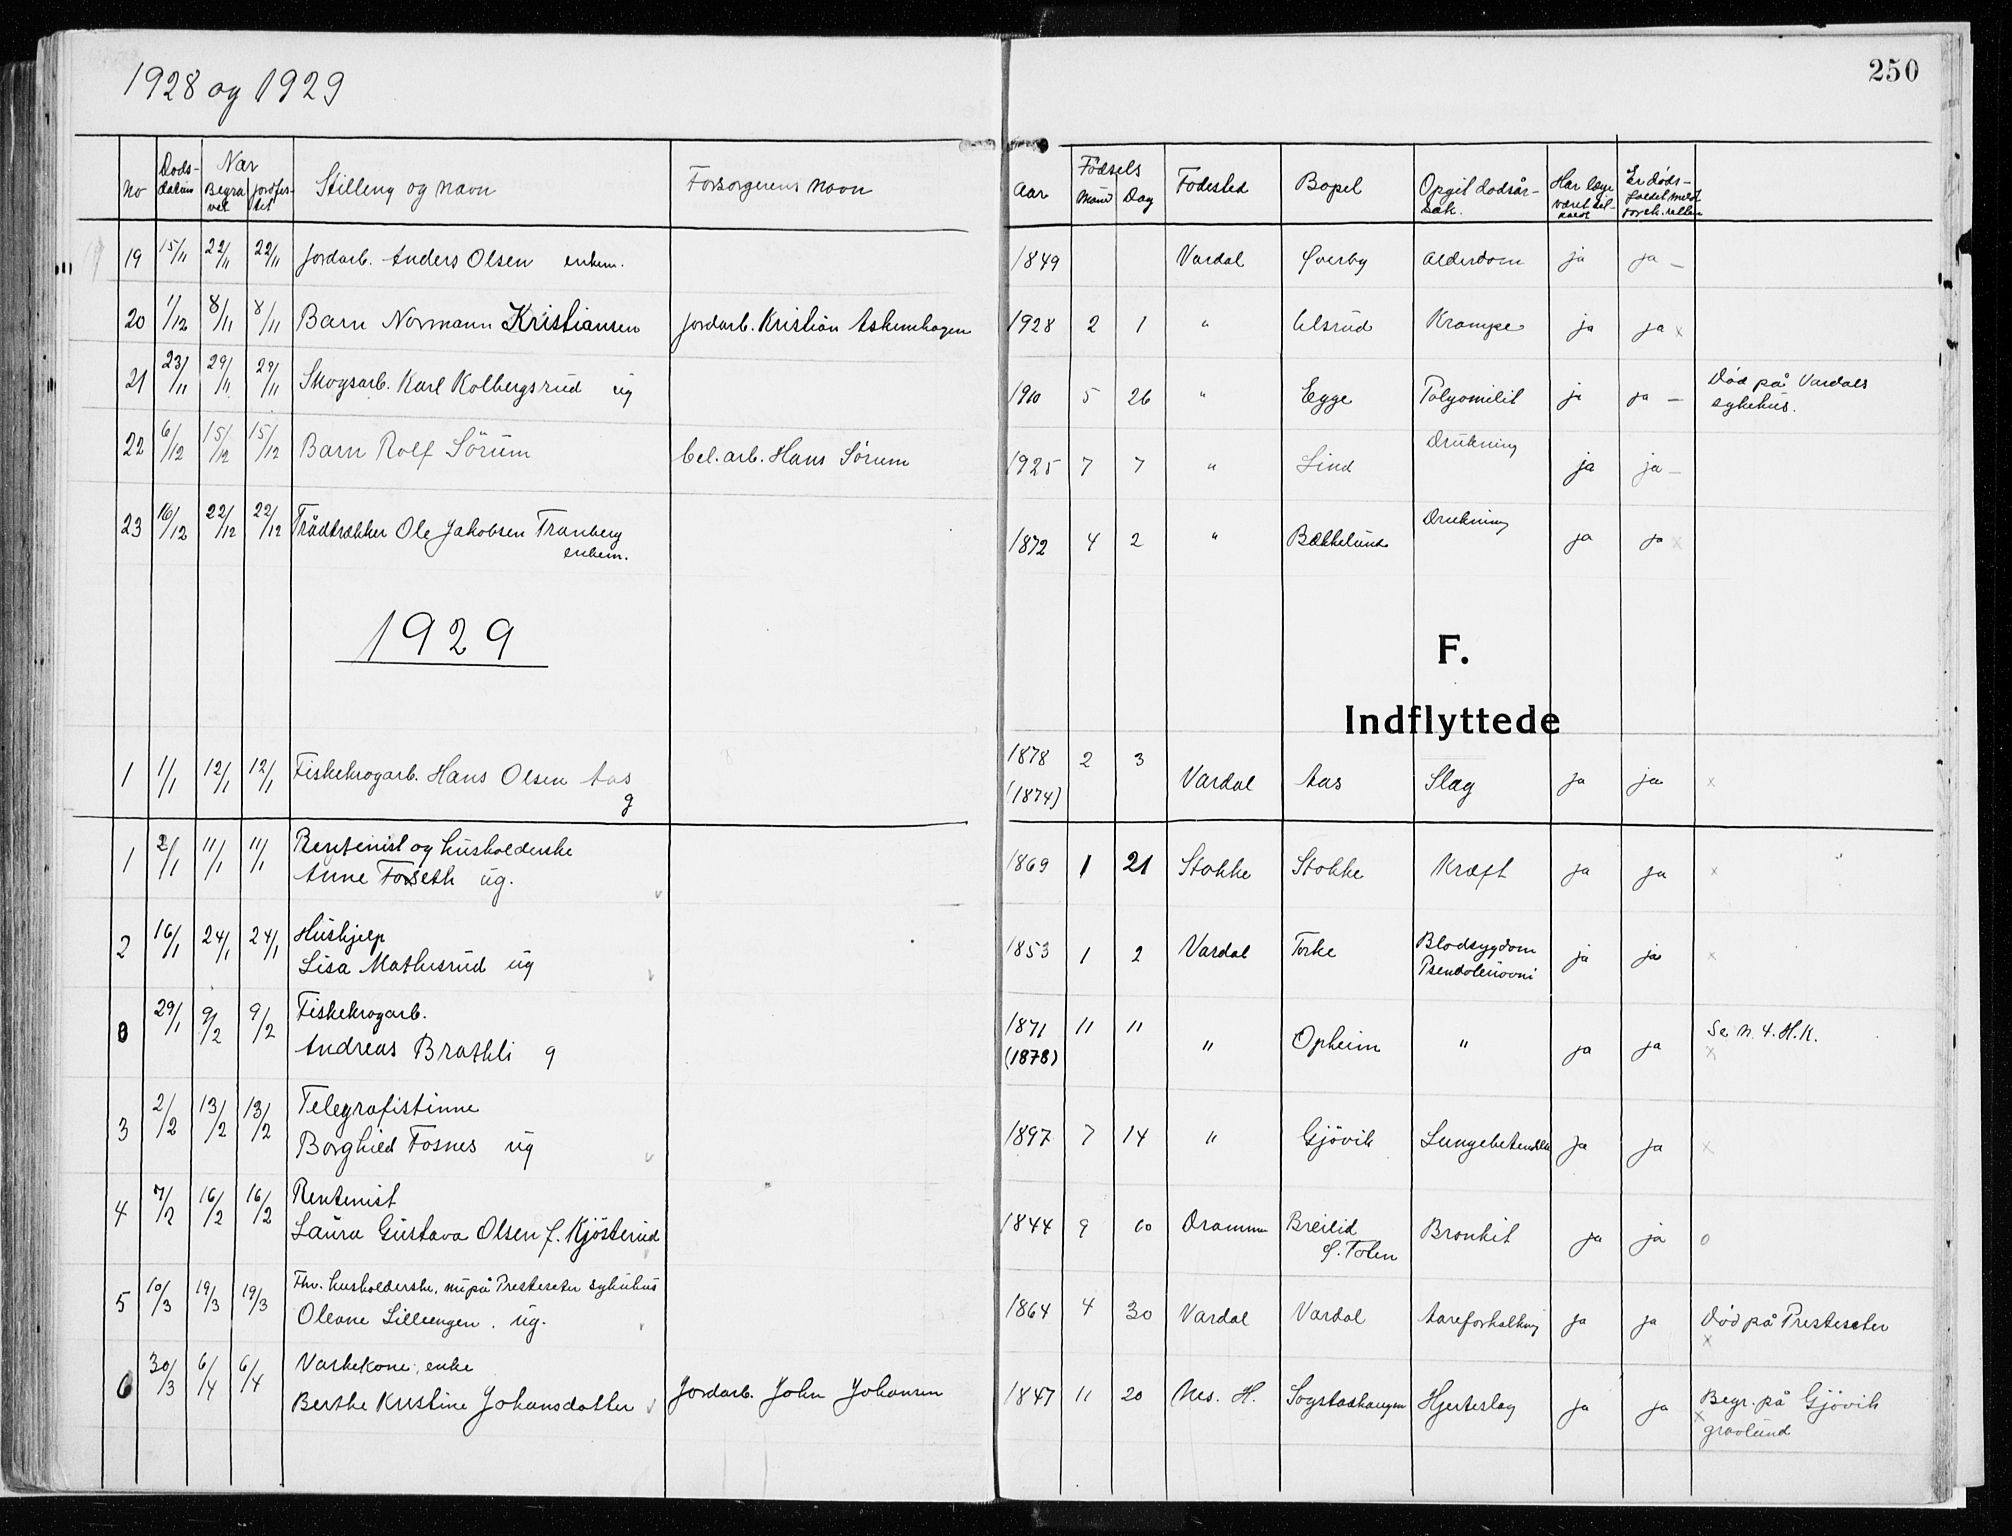 1928 og 1929
250
No Døds-datum Nar Begravet Jordfestet Stilling og navn Forsørgerens navn Aar Fødsels Maaned Dag Fødested Bopel Opgit dødsårsak. Har læge været tilkaldt Er dødsfaldet meldt
19 15/11 22/11 22/11 Jordarb. Anders Olsen enkem. 1849 Vardal Øverby Alderdom ja ja —
20 1/12 8/11 8/11 Barn Normann Kristiansen Jordarb. Kristian Askenhagen 1928 2 1 " Ulsrud Krampe ja ja x
21 23/11 29/11 29/11 Skogsarb. Karl Kolbergsrud ug 1910 5 26 " Egge Polyomilit ja ja — Død på Vardals
sykehus.
22 6/12 15/12 15/12 Barn Rolf Sörum bel.arb. Hans Sörum 1925 7 7 " Lind Drukning ja ja —
23 16/12 22/12 22/12 Trådtrækker Ole Jakobsen Tranberg 1872 4 2 " Bækkelund Drukning ja ja x
enkem.
1929
F.
Indflyttede
1 1/1 12/1 12/1 Fiskekrogarb. Hans Olsen Aas 1878 2 3 Vardal Aas Slag ja ja x
g (1874)
1 2/1 11/1 11/1 Rentenist og husholderske
Anne Forseth ug. 1869 1 21 Stokke Stokke Kræft ja ja x
2 16/1 24/1 24/1 Hushjelp
Lisa Mathisrud ug 1853 1 2 Vardal Torke Blodsygdom ja ja x
29/1 9/2 9/2 Fiskekrogarb. 1871 11 11
Andreas Brathli g (1878) " Opheim " ja ja Se N. 4. H.K.
x
3 2/2 13/2 13/2 Telegrafistinne
Borghild Fosnes ug 1897 7 14 " Gjövik Lungebetendelse ja ja x
4 7/2 16/2 16/2 Rentenist
Laura Gustava Olsen f. Kjösterud 1844 9 10 Drammen Breilid Bronkit ja ja o
Ø. Toten
5 10/3 19/3 19/3 Fhv. husholderske, nu på Presteseter sykehus
Oleane Lilleengen. ug. 1864 4 30 Vardal Vardal Aareforkalkning ja ja Død på Presteseter
x
6 30/3 6/4 6/4 Vaskekone, enke
Berthe Kristine Johansdatter Jordarb. John Johansen 1847 11 20 Nes. H. Sogstadhaugen Hjerteslag ja ja Begr. på Gjövik
x gravlund